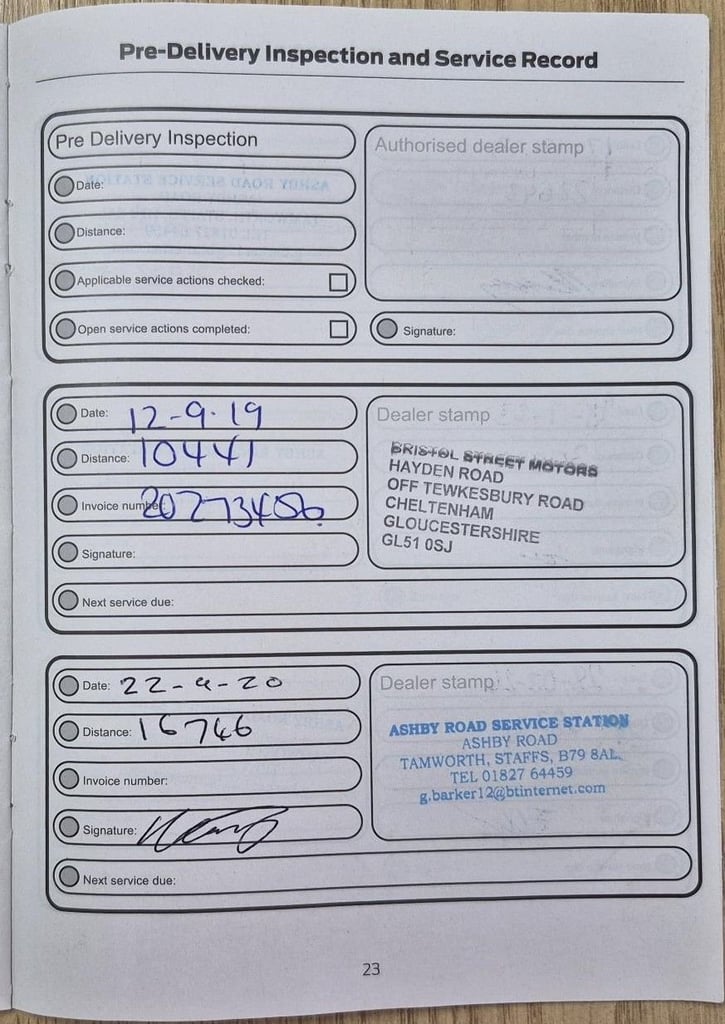 Pre-Delivery Inspection and Service Record
Pre Delivery Inspection
Authorised dealer stamp
Date:
Distance:
Applicable service actions checked:
Open service actions completed:
Signature:
Date: 12-9-19
Dealer stamp
Distance: 10441
Invoice number: 20273456
Signature:
BRISTOL STREET MOTORS
HAYDEN ROAD
OFF TEWKESBURY ROAD
CHELTENHAM
GLOUCESTERSHIRE
GL51 0SJ
Next service due:
Date: 22-9-20
Dealer stamp
Distance: 16746
Invoice number:
Signature:
ASHBY ROAD SERVICE STATION
ASHBY ROAD
TAMWORTH, STAFFS, B79 8AL.
TEL 01827 64459
g.barker12@btinternet.com
Next service due:
23